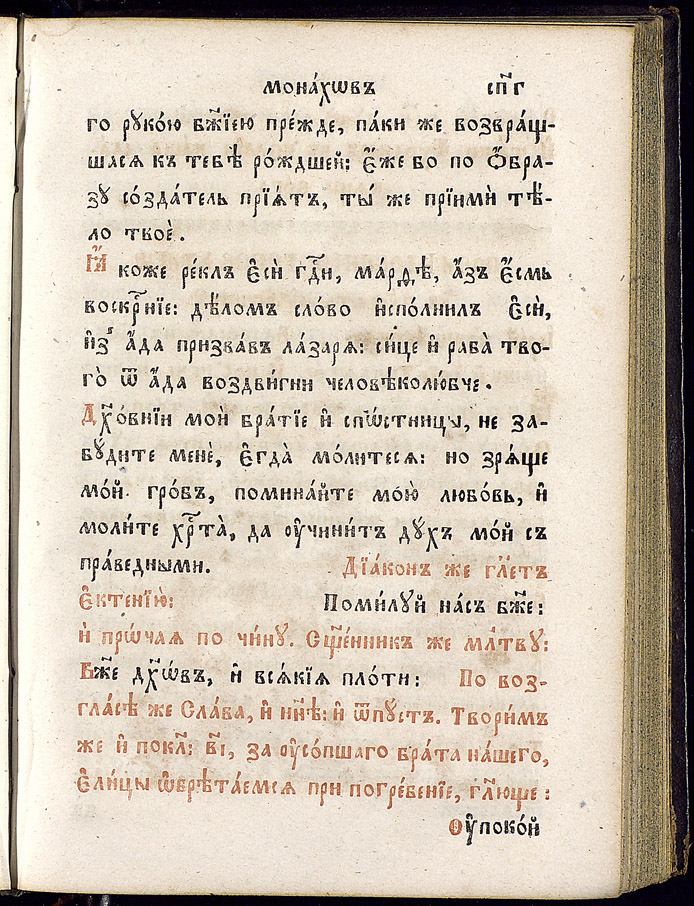 мона́хѡвъ сп҃г
го рꙋко́ю бж҃їею пре́жде, па́ки же возвра́щ-
шасѧ къ тебѣ̀ ро́ждшей: є҆́же во по ѻ҆́бра-
зꙋ со́зда́тель прїѧ́тъ, ты́ же прїимѝ тѣ́-
ло твоѐ.
Ꙗ҆́коже ре́клъ є҆сѝ гдⷭ҇и, ма́рѳѣ, а҆́зъ є҆́смь
воскрⷭ҇нїе: дѣ́ломъ сло́во и҆спо́лнилъ є҆сѝ,
и҆з̾ а҆́да призва́въ ла́зарѧ: си́це и҆ раба̀ тво-
го̀ ѿ а҆́да воздви́гни человѣколю́бче.
Дх҃о́внїи мои̑ бра́тїе и҆ спо́стницы, не за-
бꙋ́дите менѐ, є҆гда̀ мо́литесѧ: но зрѧ́ще
мо́й гро́бъ, помина́йте мою̀ любо́вь, и҆
моли́те хрⷭ҇та̀, да ᲂу҆чини́тъ дꙋ́хъ мо́й съ
пра́ведными. Дїа́конъ же гл҃етъ
є҆ктенїю̀: Поми́лꙋй на́съ бж҃е:
и҆ прѡ́чаѧ по чи́нꙋ. Сщ҃е́нникъ же мл҃твꙋ:
Бж҃е дх҃ѡ́въ, и҆ всѧ́кїѧ пло́ти: По воз-
гла́сѣ же Сла́ва, и҆ нн҃ѣ: и҆ ѿпꙋ́стъ. Твори́мъ
же и҆ покл҃: в҃і, за ᲂу҆со́пшаго бра́та на́шего,
є҆ли́цы ѡ҆брѣта́емсѧ при погребе́нїе, гл҃юще:
Оу҆поко́й